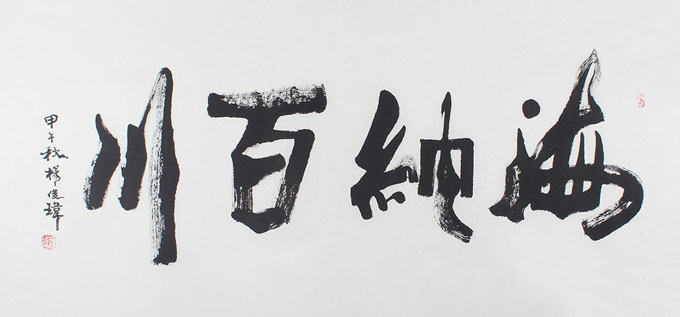 海納百川
甲午秋楊俊瑋